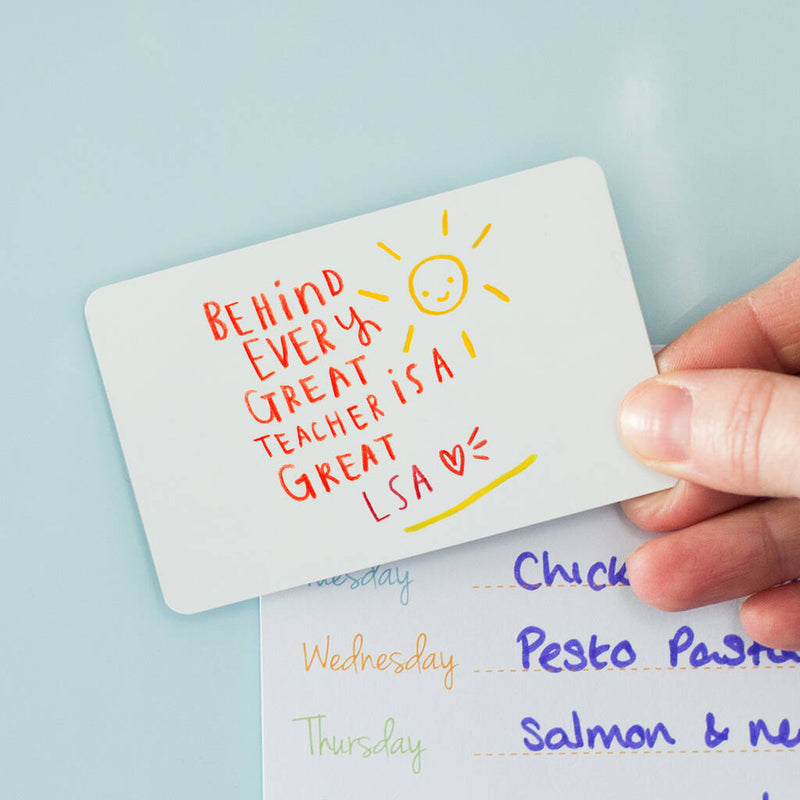 BEHIND
EVERY
GREAT
TEACHER IS A
GREAT
LSA
Tuesday
Wednesday Pesto
Thursday Salmon &